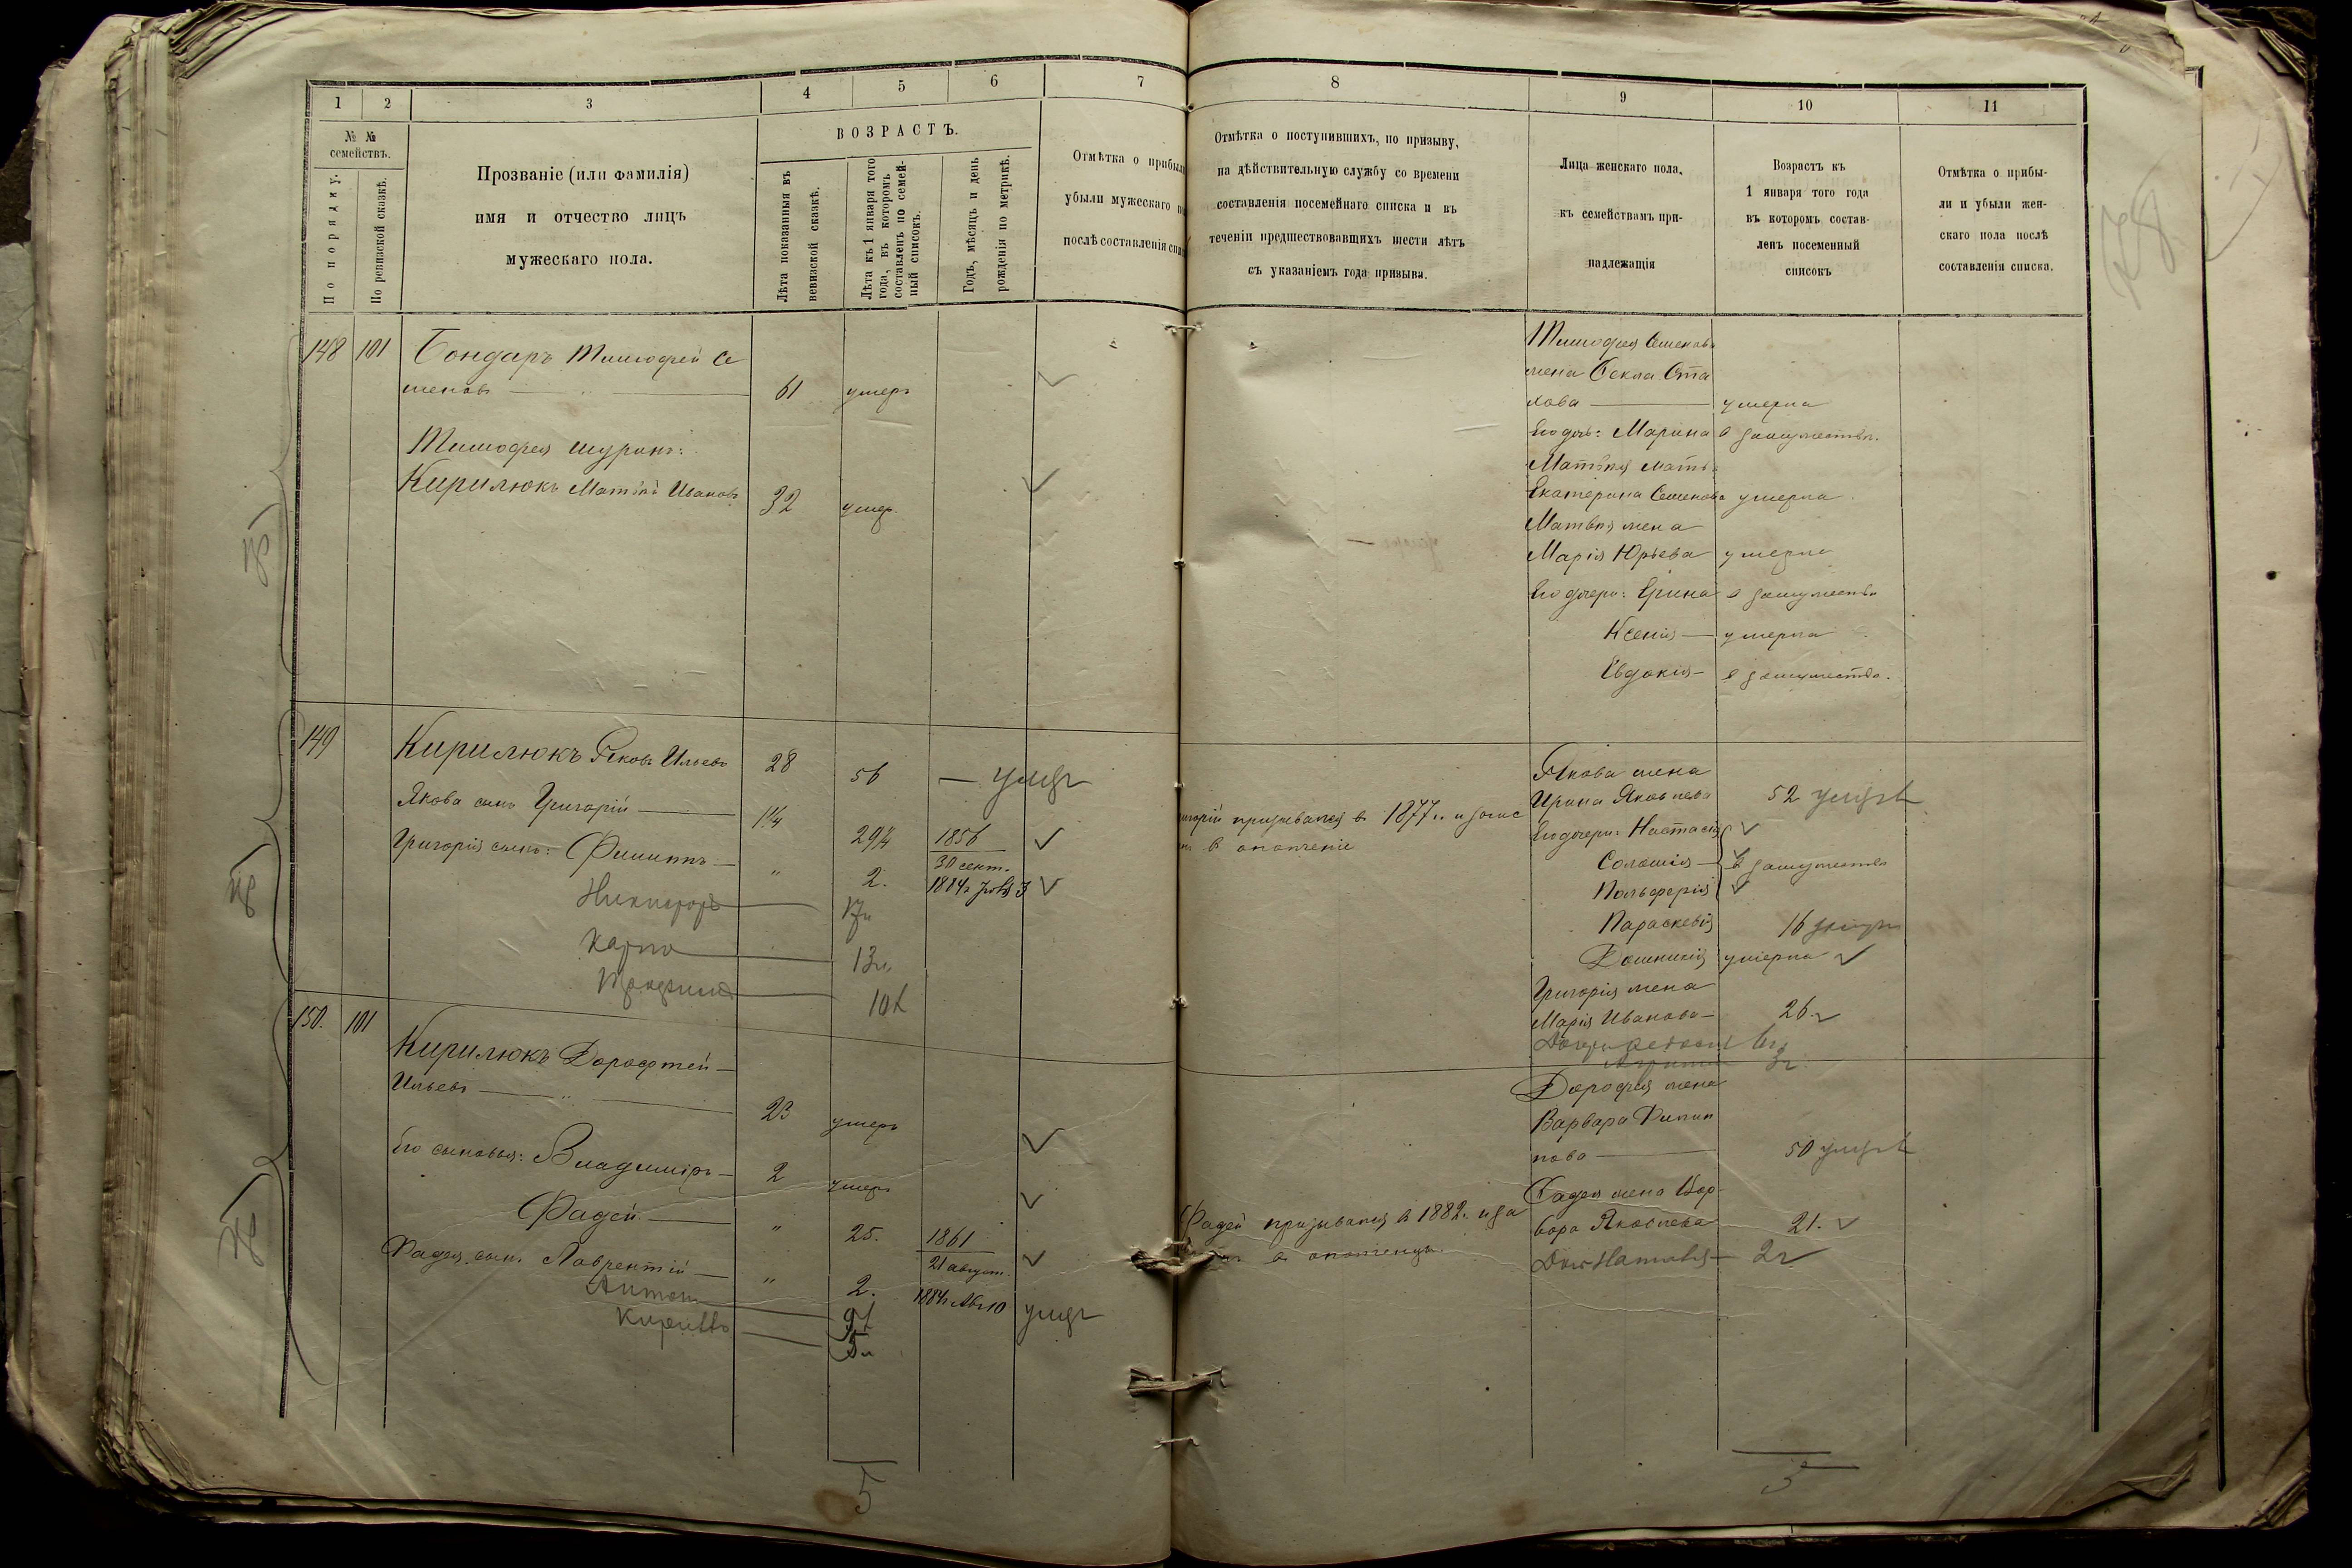 1 2 3 4 5 6 7
№ №
семействъ.
По порядку.
По ревизской сказкѣ.
Прозваніе (или фамилія)
имя и отчество лицъ
мужескаго пола.
ВОЗРАСТЪ.
Лѣта показанныя въ
ревизской сказкѣ.
Лѣта къ 1 января того
года, въ которомъ
составленъ по семей-
ный списокъ.
Годъ, мѣсяцъ и день
рожденія по метрикѣ.
Отмѣтка о прибыли
убыли мужескаго
послѣ составленія
148 101 Бондарь Тимофей Се
меновъ 61 умеръ
Тимофея шуринъ:
Кирилюкъ Матвѣй Ивановъ 32 умеръ
149 Кирилюкъ Яковъ Ильевъ 28 56 — умер
Якова сынъ Григорій 1¼ 29¼ 1856
30 сент.
Григорія сынъ: Филиппъ " 2. 1884
Никифоръ 17
Карпо 13
10
150. 101 Кирилюкъ Дорофтей
Ильевъ 23 умеръ
Его сыновья: Владиміръ 2 умеръ
Фадей " 25. 1861
21 август.
Фадея сынъ Лаврентій " 2. 1884 10 умер
Антон 9
Кирилъ 5
5
8 9 10 11
Отмѣтка о поступившихъ, по призыву,
на дѣйствительную службу со времени
составленія посемейнаго списка и въ
теченіи предшествовавшихъ шести лѣтъ
съ указаніемъ года призыва.
Лица женскаго пола,
къ семействамъ при-
надлежащія
Возрастъ къ
1 января того года
въ которомъ состав-
ленъ посеменный
списокъ
Отмѣтка о прибы-
ли и убыли жен-
скаго пола послѣ
составленія списка.
Тимофея Семенова
жена Фекла Ота
пова умерла
Его дочь: Марина в замужествѣ.
Матвѣя мать
Екатерина Семенова умерла
Матвѣя жена
Марія Юрьева умерла
Его дочери: Ирина в замужествѣ
Ксенія умерла
Евдокія в замужествѣ.
Якова жена
Ирина Яковлева 52
игорій призывался в 1877 г. и
в ополченіе
Его дочери: Настасія
Соломія в замужествѣ
Польферія
Параскевія 16
Домникія умерла
Григорія жена
Марія Иванова 26
Дорофея жена
Варвара Филип
пова 50
Фадей призывался в 1882 г. и за
в ополченцы.
Фадея жена Вар
вара Яковлева 21.
Доч 2